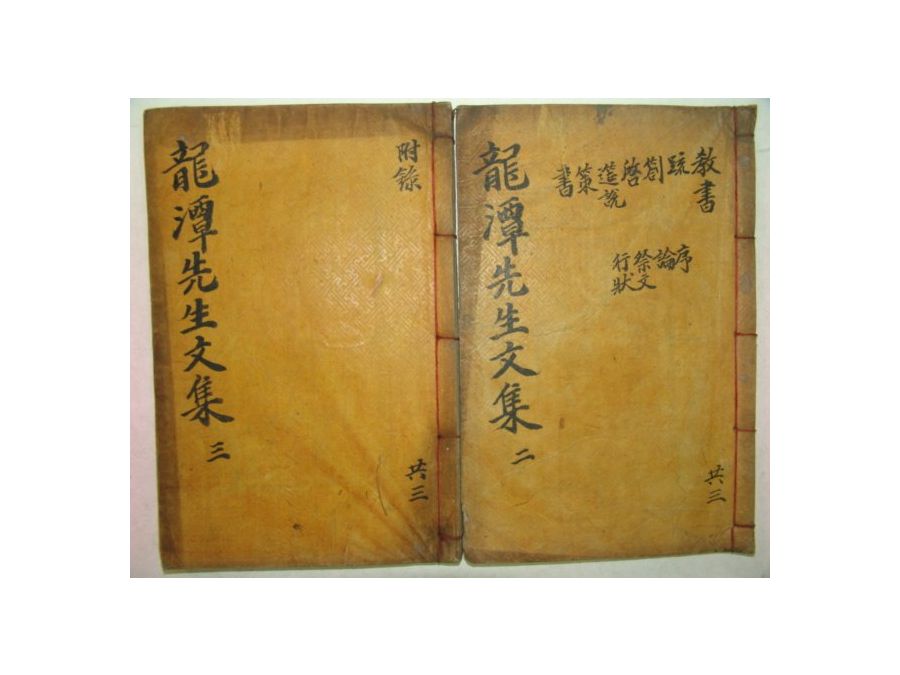 教書
疏
箚
啓
筵說
策
書
序
論
祭文
行狀
共三
龍潭先生文集 二
附錄
共三
龍潭先生文集 三